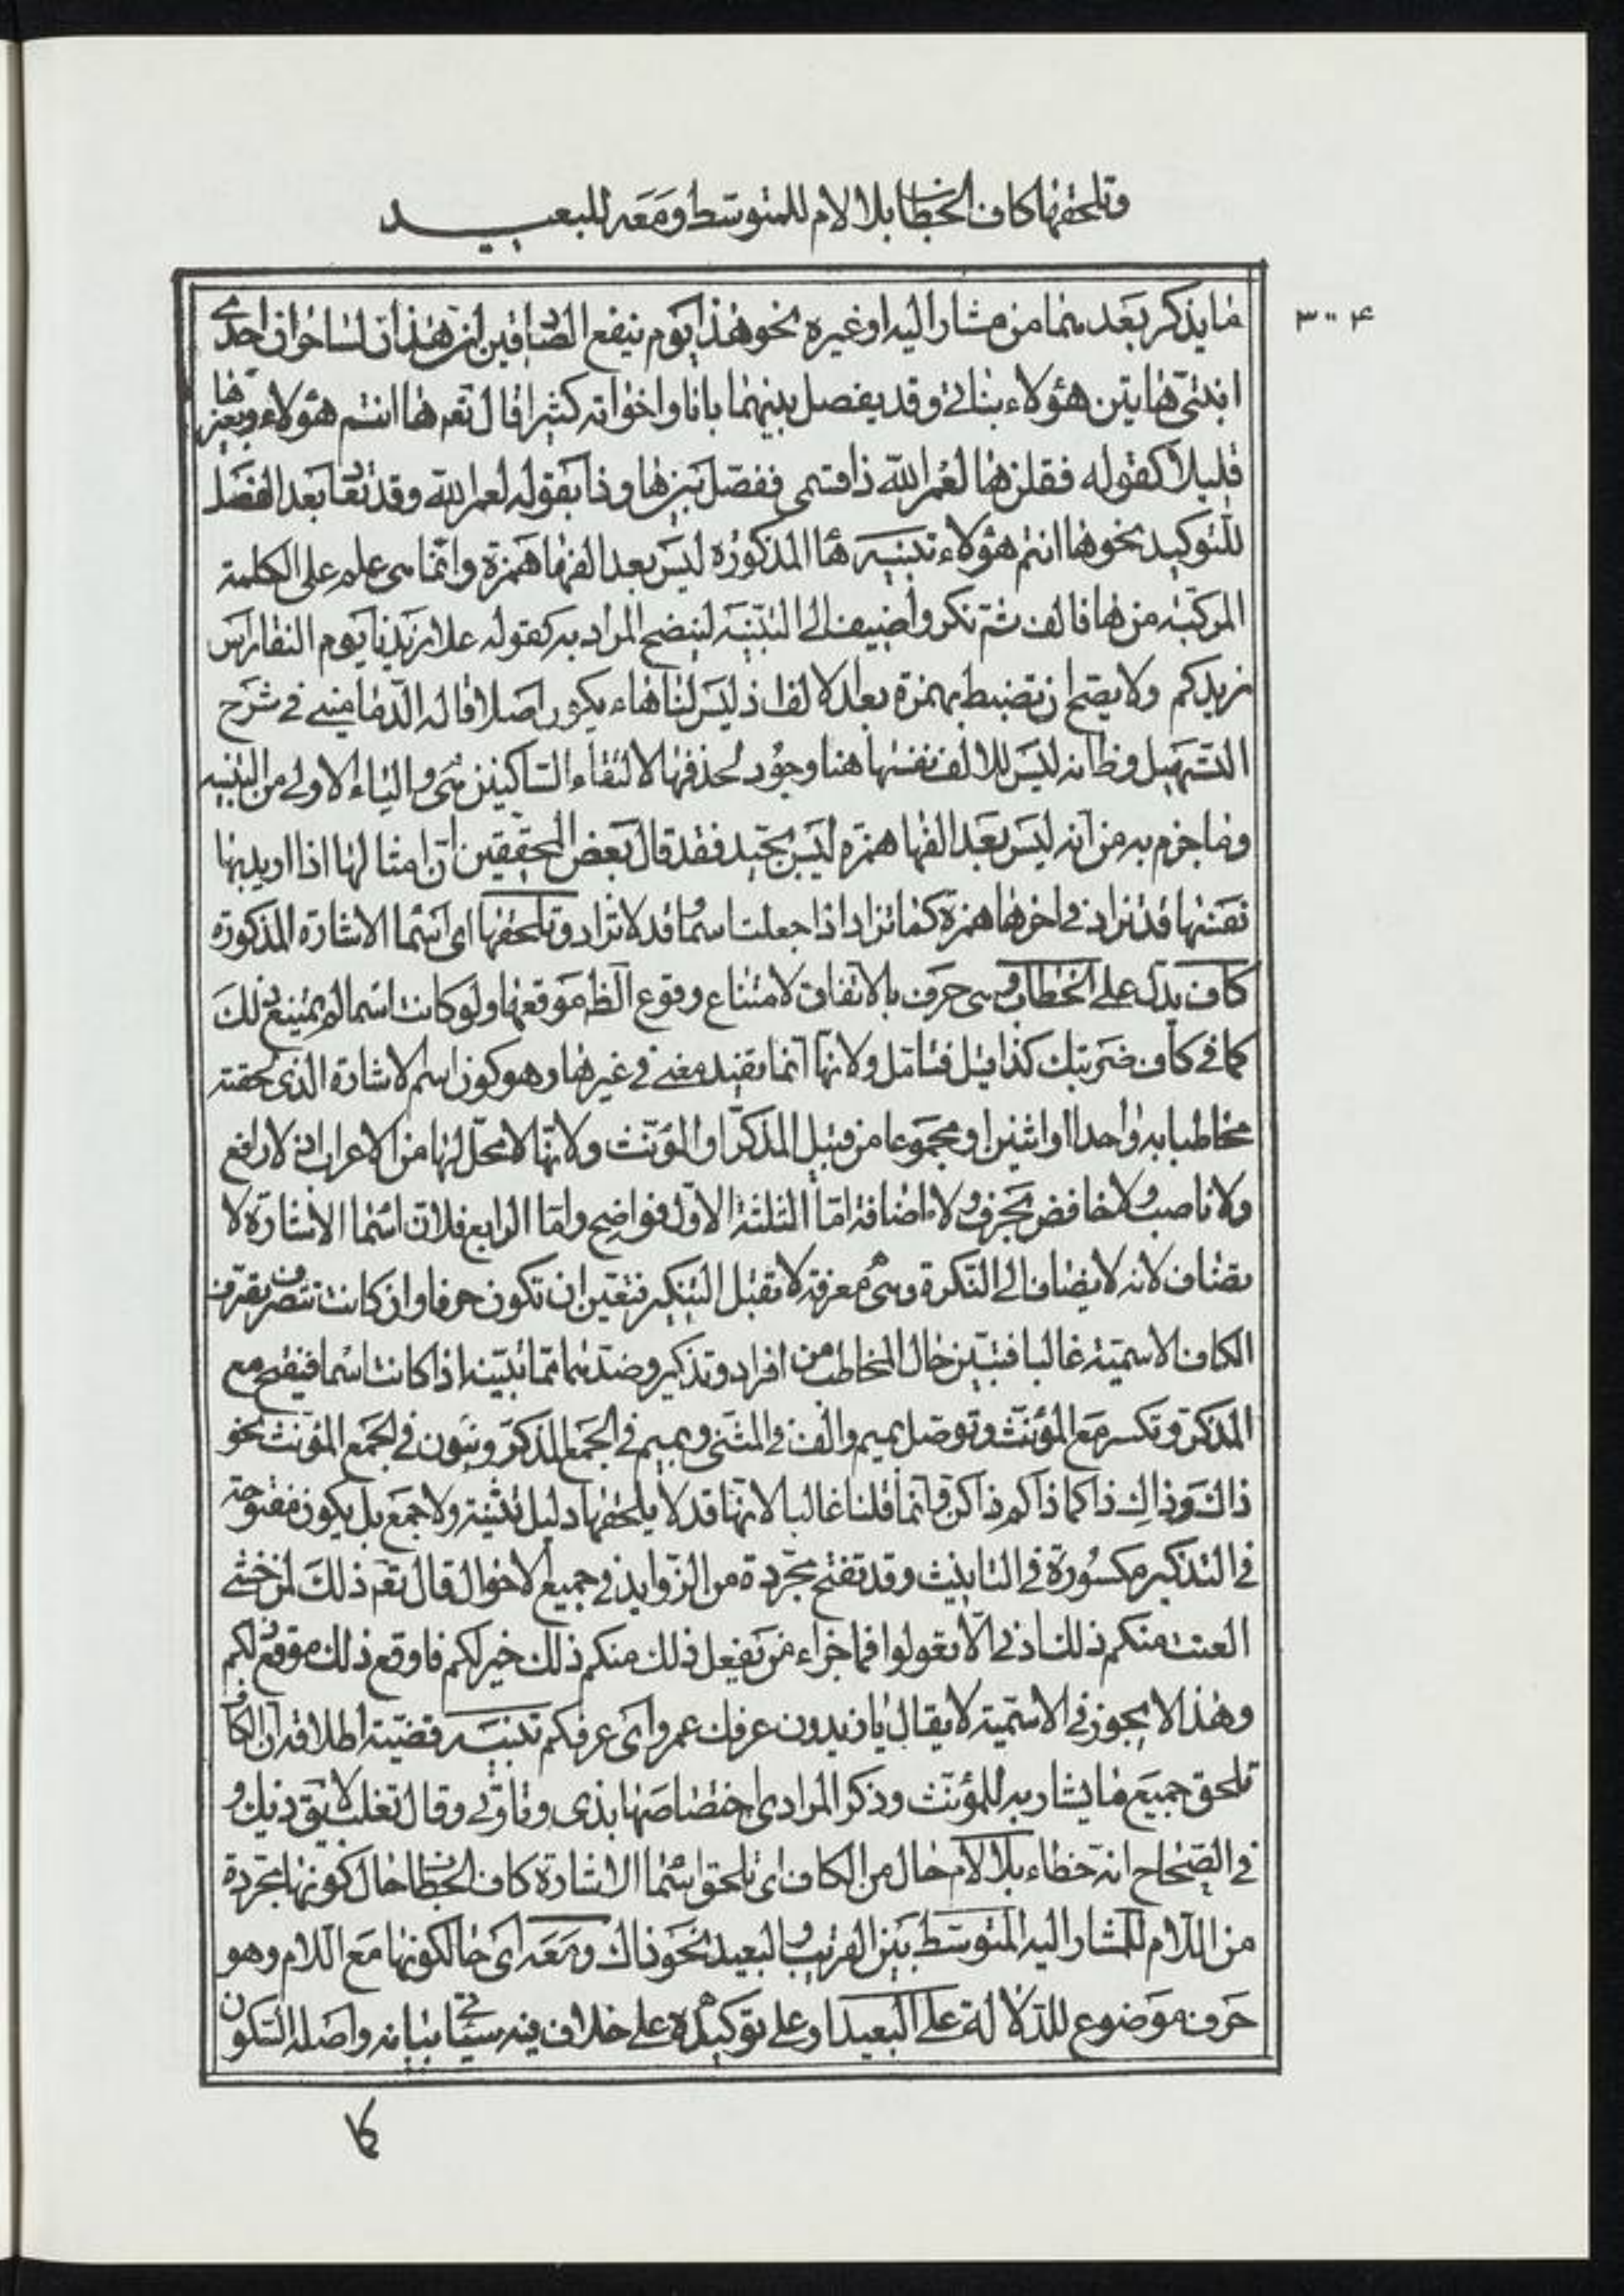 وتلحقها كاف الخطاب بلا لام للمتوسط ومعه للبعيد
٣٠٠٤
ما يذكر بعدهما من مشار اليه او غيره نحو هذا يوم ينفع الصادقين ان هذان لساحران احدى
ابنتى هاتين هؤلاء بناتى وقد يفصل بينهما بانا واخواته كثيرا قال تعم ها انتم هؤلاء وبغيرها
قليلا كقوله فقلن ها لعمر الله ذا قسمى ففصل بين ها وذا بقوله لعمر الله وقد تعاد بعد الفصل
للتوكيد نحو ها انتم هؤلاء تنبيه ها المذكوره ليس بعد الفها همزة وانما هى علم على الكلمة
المركبة من ها فالف ثم نكر واضيف الى التنبيه ليتضح المراد به كقوله علا زيدنا يوم النقا راس
زيدكم ولا يصح ان تضبط بهمزة بعد الالف اذ ليس لنا هاء يكون اصلا قاله الدمامينى فى شرح
التسهيل وظ انه ليس للالف نفسها هنا وجود لحذفها لالتقاء الساكنين هى والياء الاولى من التنبيه
وما جزم به من انه ليس بعد الفها همزه ليس بجيد فقد قال بعض المحققين ان امثالها اذا اريد بها
نفسها قد تزاد فى اخرها همزة كما تزاد اذا جعلت اسما وقد لا تزاد وتلحقها اى اسما الاشارة المذكوره
كاف يدل على الخطاب وهى حرف بالاتفاق لامتناع وقوع الظ موقعها ولو كانت اسما لم يمتنع ذلك
كما فى كاف ضربتك كذا قيل فتامل ولانها انما تفيد معنى فى غيرها وهو كون اسم الاشارة الذى لحقته
مخاطبا به واحدا او اثنين او مجموعا من قبيل المذكر او المؤنث ولانها لا محل لها من الاعراب اذ لا رافع
ولا ناصب ولا خافض بحرف ولا اضافة اما الثلثة الاول فواضح واما الرابع فلان اسما الاشارة لا
تضاف لانه لا يضاف الى النكرة وهى معرفة لا تقبل التنكير فتعين ان تكون حرفا وان كانت تتصرف تصرف
الكاف الاسمية غالبا فتبين حال المخاطب من افراد وتذكير وضدهما مما تبينه اذا كانت اسما فتفتح مع
المذكر وتكسر مع المؤنث وتوصل بميم والف فى المثنى وبميم فى الجمع المذكر وبنون فى الجمع المؤنث نحو
ذاك وذاكِ ذاكما ذاكم ذاكن وانما قلنا غالبا لانها قد لا يلحقها دليل تثنية ولا جمع بل يكون مفتوحة
فى التذكير مكسورة فى التانيث وقد تفتح مجردة من الزوايد فى جميع الاحوال قال تعم ذلك لمن خشى
العنت منكم ذلك ادنى الا تعولوا فما جزاء من يفعل ذلك منكم ذلك خير لكم فاوقع ذلك موقع ذلكم
وهذا لا يجوز فى الاسمية لا يقال يا زيدون عرفك عمرو اى عرفكم تنبيه قضية اطلاقه ان الكاف
تلحق جميع ما يشار به للمؤنث وذكر المرادى اختصاصها بذى وتا وتى وقال تغلب لا يق ذيك و
فى الصحاح انه خطاء بلا لام حال من الكاف اى تلحق اسما الاشارة كاف الخطاب حال كونها مجردة
من اللام للمشار اليه المتوسط بين القريب والبعيد نحو ذاك ومعه اى حالكونها مع اللام وهو
حرف موضوع للدلالة على البعيد او على توكيده على خلاف فيه سياتى بيانه واصله السكون
كا